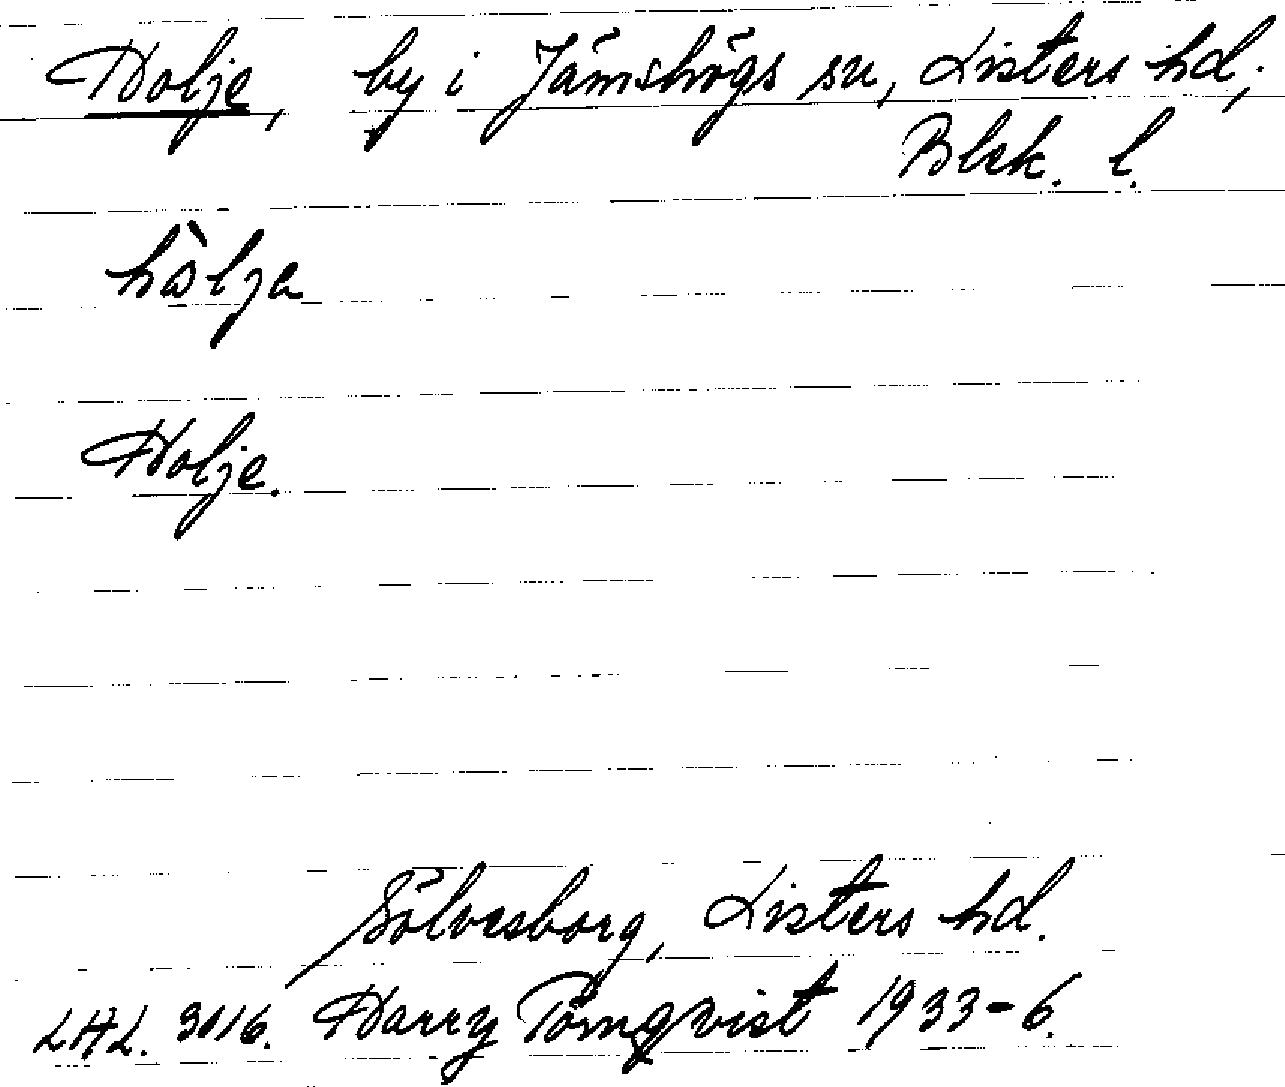 Holje, by i Jämshögs sn, Listers hd,
Blek. l.
hòlja
Holje.
Sölvesborg, Listers hd.
LAL. 3016. Harry Törnqvist 1933-6.